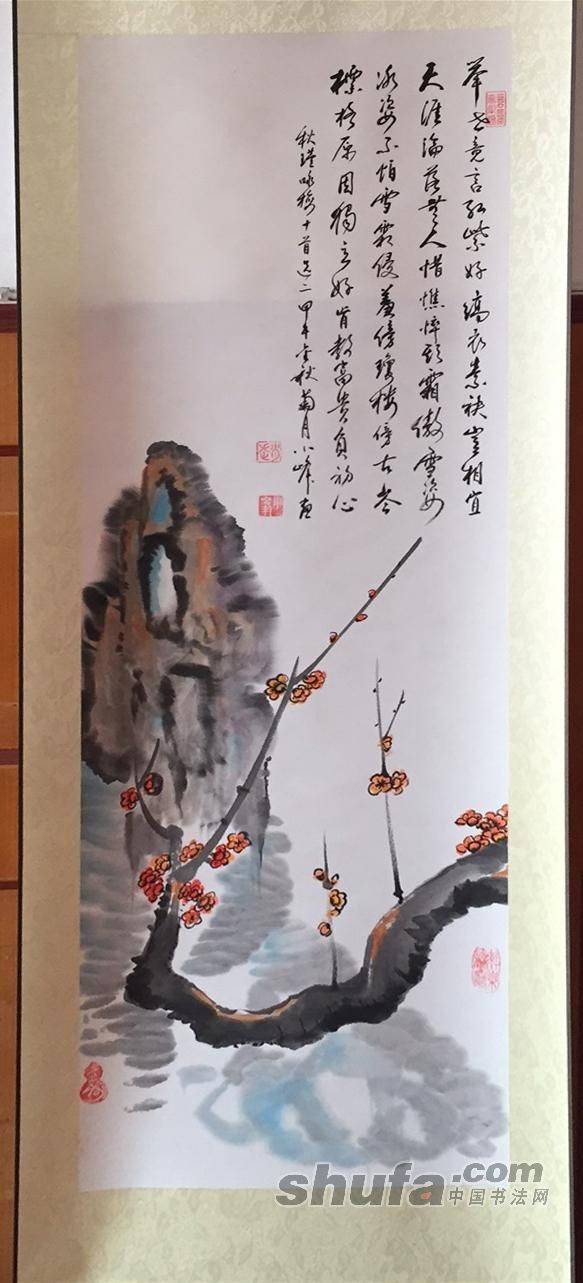 举世竞言红紫好缟衣素袂岂相宜
天涯沦落无人惜憔悴欺霜傲雪姿
冰姿不怕雪霜侵羞傍琼楼傍古岑
标格原因独立好肯教富贵负初心
秋瑾咏梅十首选二甲午金秋菊月小峰画
shufa.com
中国书法网